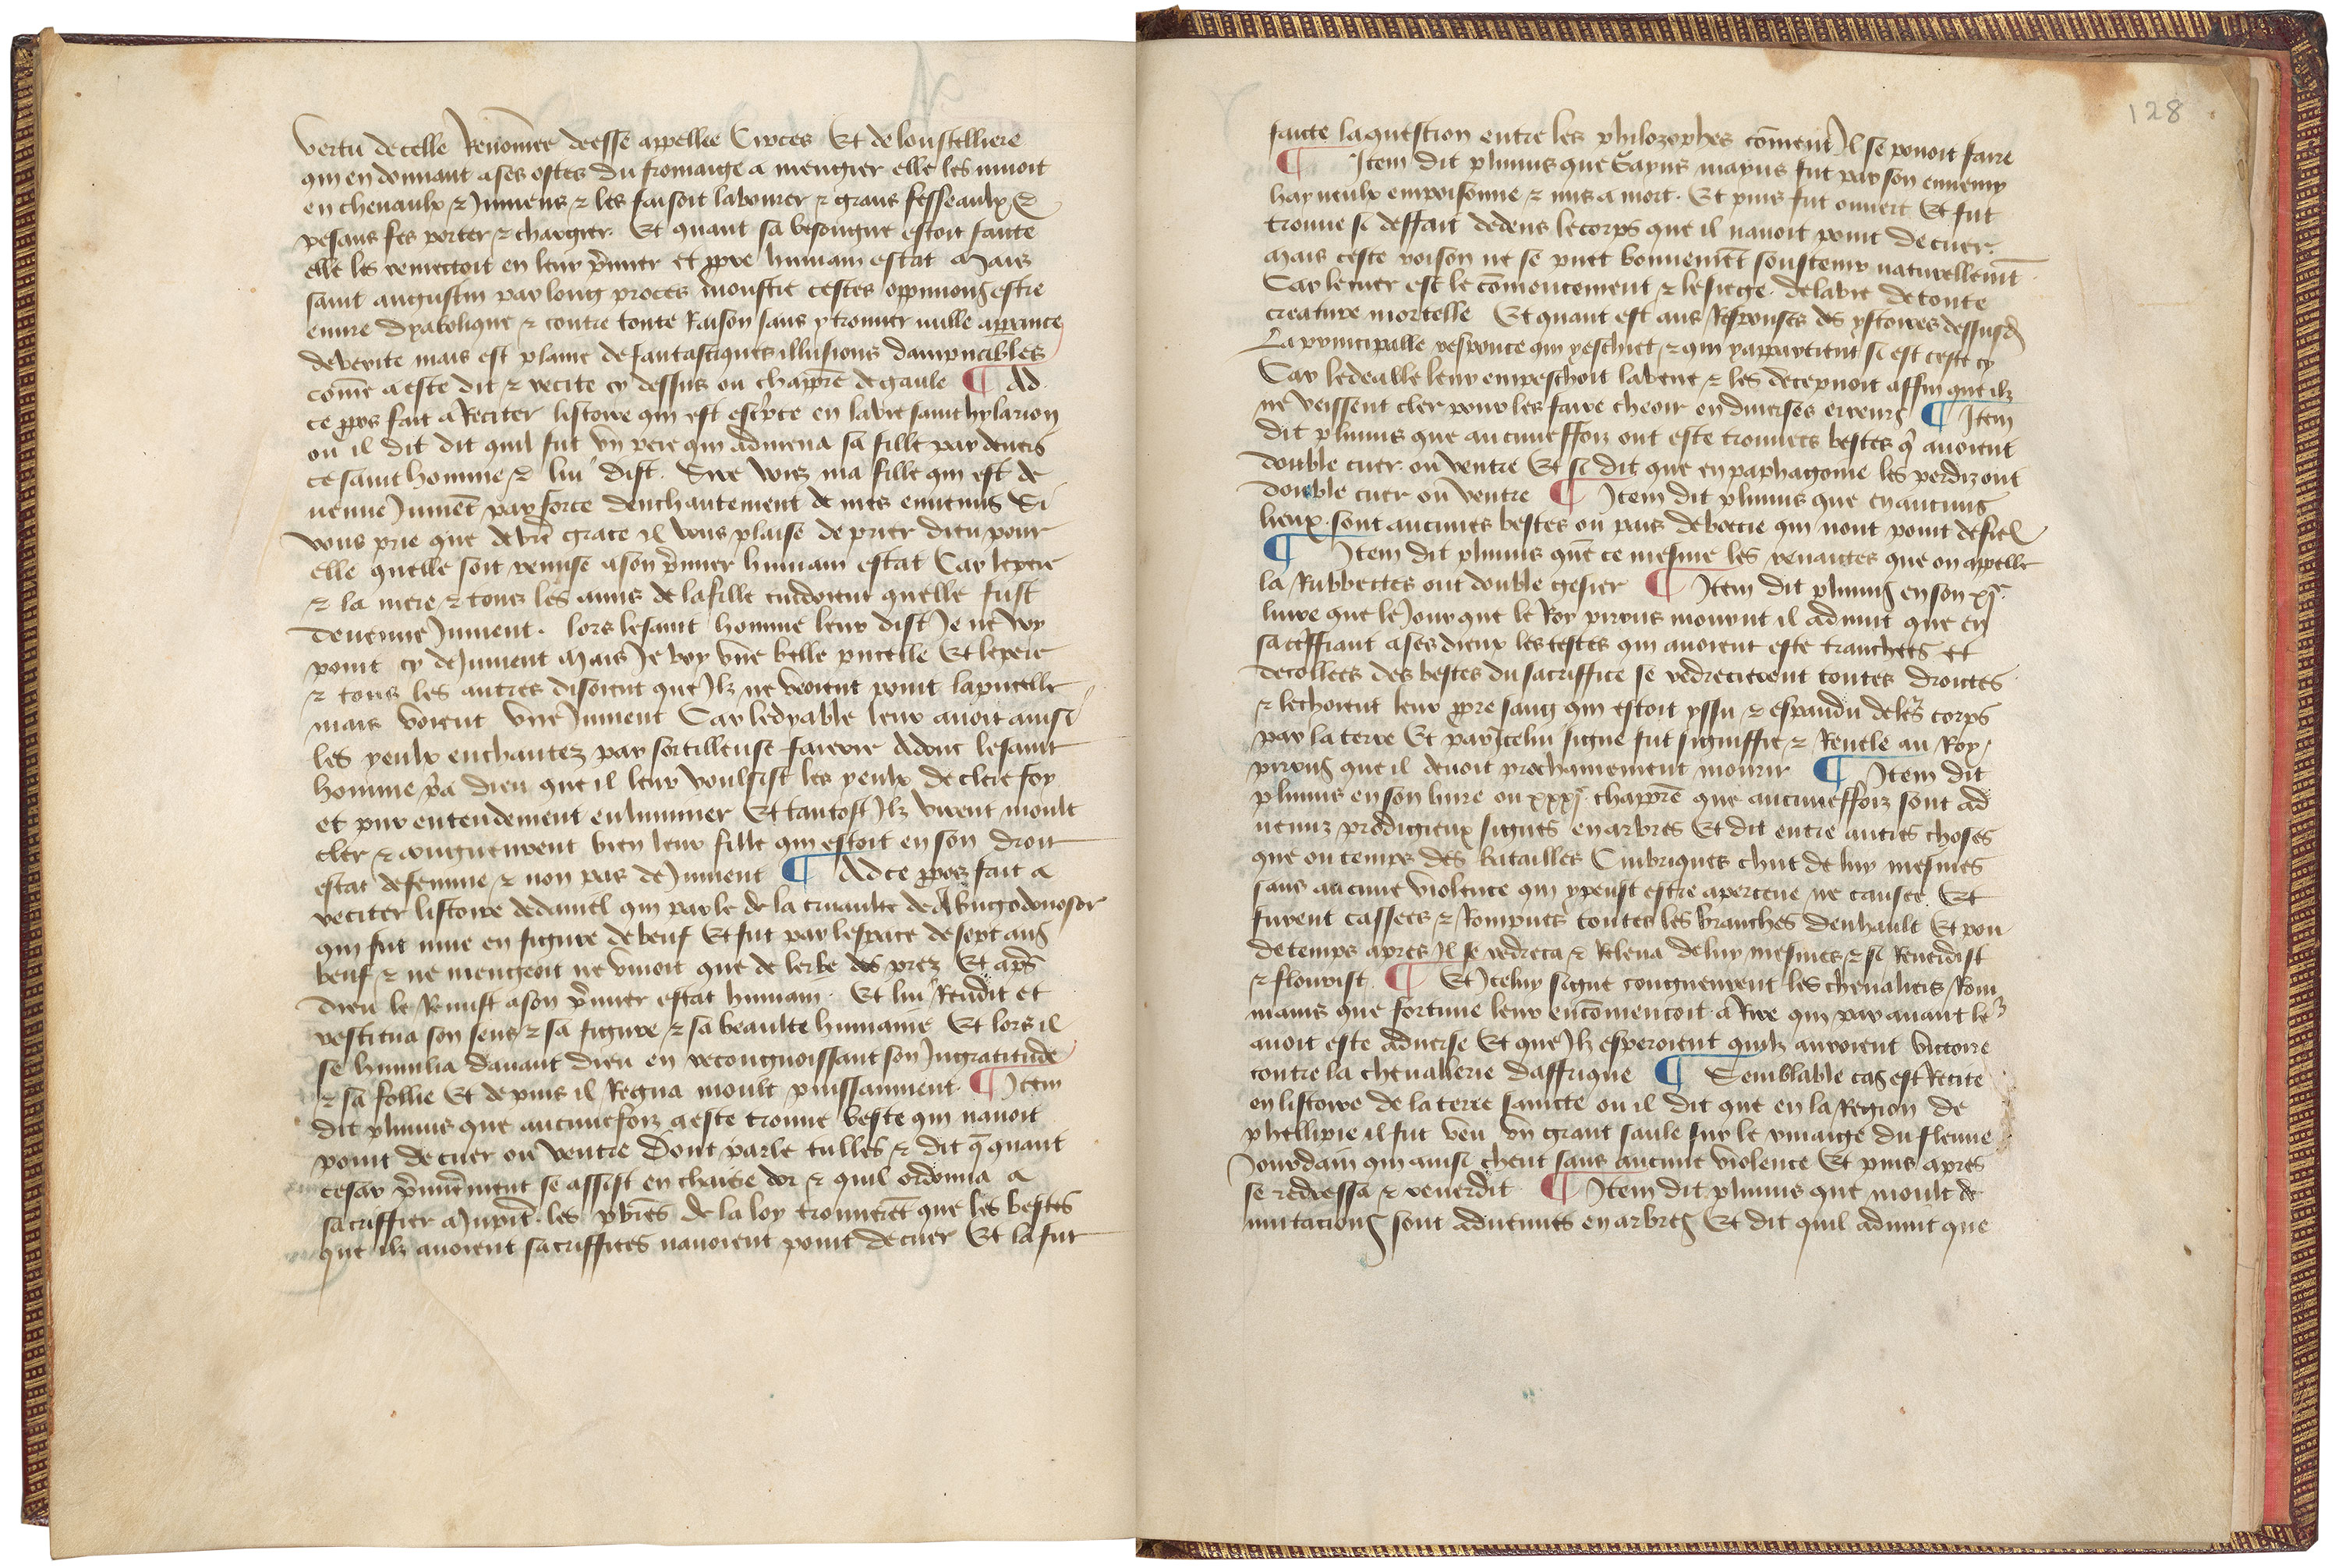 vertu de celle Renomee deesse appellee Circes Et de loustelliere
qui en donnant a ses ostes du fromaige a mengier elle les muoit
en chevaulx & Jumens & les faisoit labourer & grans fesseaulx &
pesans fes porter & chargier Et quant sa besongne estoit faicte
elle les remectoit en leur pmier et ppre humain estat Mais
saint augustin par long proces monstre cestes oppinions estre
euvre dyabolique & contre toute Raison sans y trouver nulle apparence
de verite mais est plaine de fantastiques illusions dampnables
come a este dit & recite cy dessus ou chappre de gaule ¶ Ad
ce ppos fait a Reciter listore qui est escpte en la vie saint hylarion
ou il dit dit quil fut vng pere qui admena sa fille par devers
ce saint homme & lui dist. Sire voiez ma fille qui est de
venue Jument par force denchantement de mes ennemis Si
vous prie que de vre grace il vous plaise de prier dieu pour
elle quelle soit remise a son pmier humain estat Car le pere
& la mere & tous les amis de la fille cuidoient quelle fust
devenue Jument. lors le saint homme leur dist Je ne voy
point cy de Jument Mais Je voy vne belle pucelle Et le pere
& tous les autres disoient que Ilz ne veoient point la pucelle
mais voient vne Jument Car le dyable leur avoit ainsi
les yeulx enchantez par sortilleuse faierie Adonc le saint
homme pa dieu que il leur voulsist les yeulx de clere foy
et pur entendement enluminer Et tantost Ilz virent moult
cler & congneurent bien leur fille qui estoit en son droit
estat de femme & non pas de Jument ¶ Ad ce ppos fait a
reciter listore de daniel qui parle de la cruaulte de Nbugodonosor
qui fut mue en figure de beuf Et fut par lespace de sept ans
beuf & ne mengeoit ne vivoit que de lerbe des prez Et aps
dieu le Remist a son pmier estat humain. Et lui Rendit et
restitua son sens & sa figure & sa beaulte humaine Et lors il
se humilia davant dieu en recongnoissant son Ingratitude
& sa follie Et depuis il Regna moult puissamment. ¶ Item
dit plinius que aucunefoiz a este trouve beste qui navoit
point de cuer ou ventre Dont parle tulles & dit q quant
cesar pmierement se assist en chaiere dor & quil ordonna a
sacriffier a Jupit. les pbres de la loy trouverent que les bestes
que ilz avoient sacriffiees navoient point de cuer Et la fut
128
faicte la question entre les philozophes coment Il se povoit faire
¶ Item dit plinius que Gayus mayus fut par son ennemy
hayneulx empoisonne & mis a mort. Et puis fut ouvert Et fut
trouve si deffait dedens le corps que il navoit point de cuer.
Mais ceste poison ne se puet bonnement soustenir naturellement
Car le cuer est le comencement & le siege. de la vie de toute
creature mortelle Et quant est aux Responses des ystores dessusd
La principalle responce qui y eschiet & qui y appartient si est ceste cy
Car le deable leur empeschoit la veue & les decepvoit affin que ilz
ne veissent cler pour les faire cheoir en diverses erreurs ¶ Item
dit plinius que aucuneffoiz ont este trouvees bestes q avoient
double cuer ou ventre Et si dit que en paphagonie les perdiz ont
double cuer ou ventre ¶ Item dit plinius que en aucuns
lieux sont aucunes bestes ou pais de boecie qui nont point de fiel
¶ Item dit plinius que ce mesme les venaictes que on appelle
la Rubbectes ont double gesier ¶ Item dit plinius en son xj.
livre que le Jour que le Roy pirrus mourut il advint que en
sacriffiant a ses dieux les testes qui avoient este tranchees et
decollees des bestes du sacriffice se redrecierent toutes droictes
& lechoient leur ppre sang qui estoit yssu & espandu de leurs corps
par la terre Et par Icelui signe fut signiffie & Revele au Roy
pirrus que il devoit prochainement mourir ¶ Item dit
plinius en son livre ou xxxj. chappre que aucuneffoiz sont ad
venuz prodigieux signes en arbres Et dit entre autres choses
que ou temps des batailles Cimbriques cheut de luy mesmes
sans aucune violence qui y peust estre aperceue ne causee. Et
furent cassees & Rompues toutes les branches denhault Et pou
de temps apres Il se redreca & Releva de luy mesmes & si Reverdist
& flourist. ¶ Et Icelui signe congneurent les chevaliers Rom
mains que fortune leur encomencoit a Rire qui par avant le
avoit este adverse Et que Ilz esperoient quilz auroient victoire
contre la chevalerie daffrique ¶ Semblable cas est Recite
en listore de la terre saincte ou il dit que en la Region de
phellipie il fut veu vn grant saule sur le rivaige du fleuve
Jourdain qui ainsi cheut sans aucune violence Et puis apres
se redressa & reverdit ¶ Item dit plinius que moult de
mutacions sont advenues en arbres Et dit quil advint que